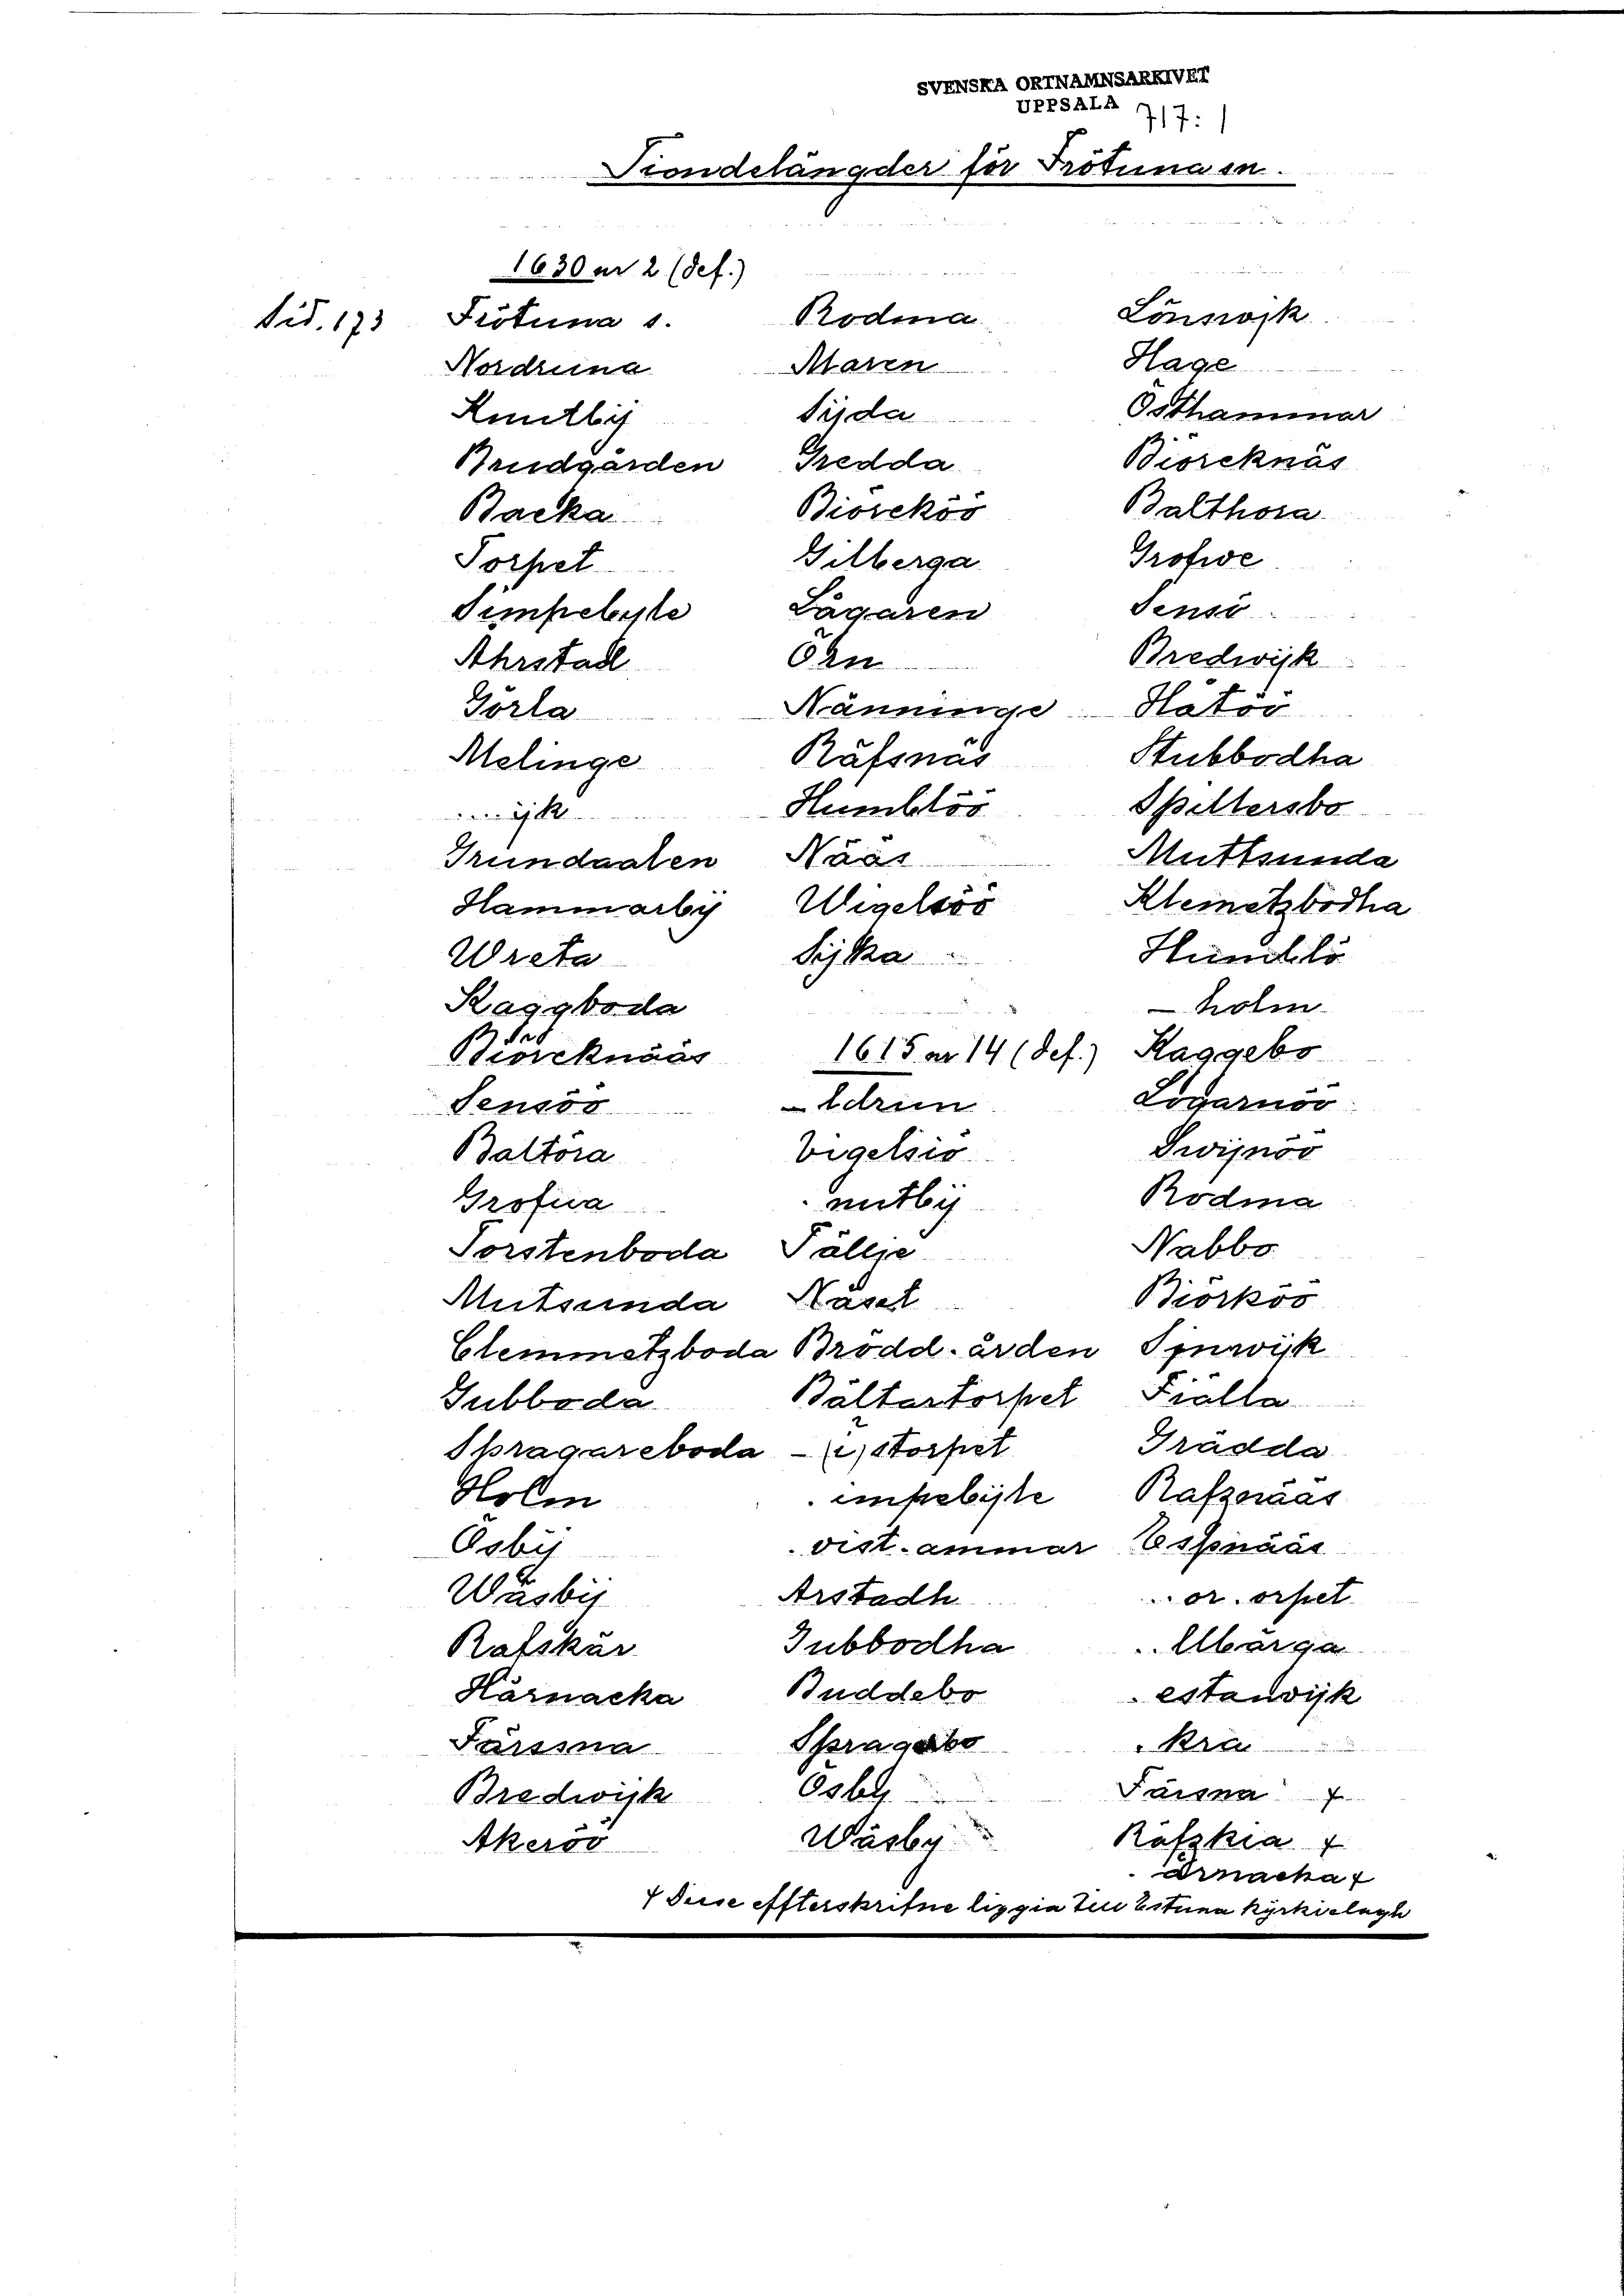 SVENSKA ORTNAMNSARKIVET
UPPSALA
717:1
Tiondelängder för Frötuna sn.
1630 nr 2 (def.)
Sid. 173
Frötuna s.
Nordruna
Knutbÿ
Brudgården
Backa
Torpet
Simpebyle
Ahrstad
Görla
Melinge
....ijk
Grundaalen
Hammarbÿ
Wreta
Kaggboda
Biörcknääs
Sensöö
Baltöra
Grofua
Torstenboda
Mutsunda
Clemmetzboda
Gubboda
Spragareboda
Holm
Ösbÿ
Wäsbÿ
Rafskär
Härnacka
Färssna
Bredwijk
Akeröö
Rodma
Maren
Sijda
Gredda
Biörcköö
Gilberga
Lågaren
Örn
Nänninge
Räfsnäs
Humblöö
Nääs
Wigelsöö
Sijka
1615 nr 14 (def.)
Vigelsiö
. nutbÿ
Fällje
Näset
Brödd.ården
Bältartorpet
. impebijle
. vist.ammar
Arstadh
Gubbodha
Buddebo
Spragarbo
Ösby
Wäsby
Lönswijk
Hage
Östhammar
Biörcknäs
Balthora
Grofwe
Sensö
Bredwijk
Hatöö
Stubbodha
Spillersbo
Muttsunda
Klemetzbodha
Humblö
– holm
Kaggebo
Logarnöö
Swijnöö
Rodma
Nabbo
Biörköö
Fiälla
Grädda
Rafznääs
Espnääs
.. or. orpet
.. lbärga
. estanvijk
. kra
Färsna +
Räfzkia +
. ärnacka +
+ Desse effterskrifne liggia till Estuna kyrkielagh